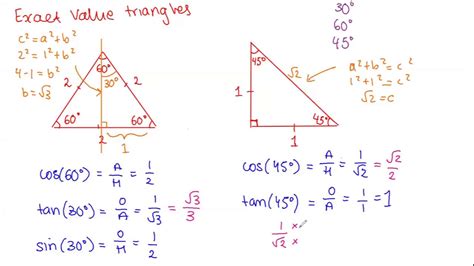 Exact Value triangles
30°
60°
45°
c² = a² + b²
2² = 1² + b²
4 - 1 = b²
b = √3
60°
30°
2
2
60°
60°
2
1
45°
√2
1
45°
1
a² + b² = c²
1² + 1² = c²
√2 = c
cos(60°) = A/H = 1/2
tan(30°) = O/A = 1/√3 = √3/3
sin(30°) = O/H = 1/2
cos(45°) = A/H = 1/√2 = √2/2
tan(45°) = O/A = 1/1 = 1
1/√2 × ×